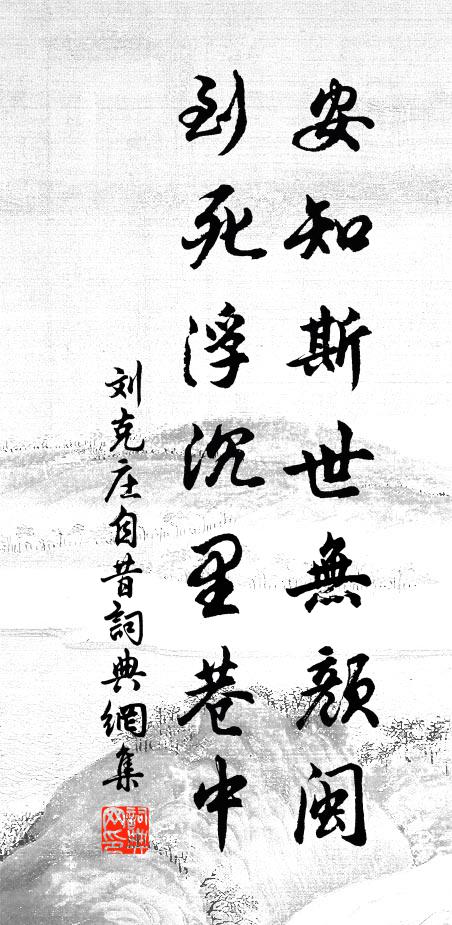 安知斯世無顏閔
到死浮沉里巷中
刘克庄自昔詞典網集
詞典网印